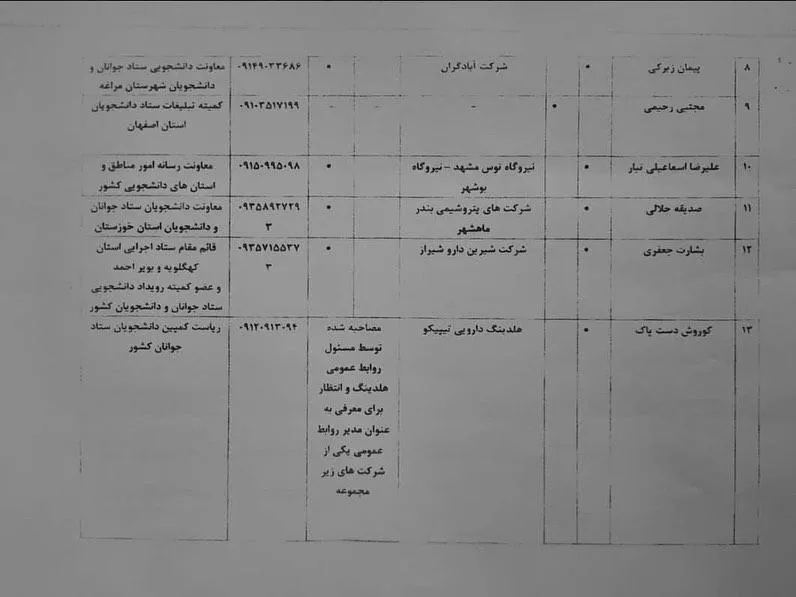 ۸ پیمان زیرکی • شرکت آبادگران • ۰۹۱۴۹۰۳۳۶۸۶ معاونت دانشجویی ستاد جوانان و
دانشجویان شهرستان مراغه
۹ مجتبی رحیمی • - - - ۰۹۱۰۳۵۱۷۱۹۹ کمیته تبلیغات ستاد دانشجویان
استان اصفهان
۱۰ علیرضا اسماعیلی تبار • نیروگاه توس مشهد – نیروگاه • ۰۹۱۵۰۹۹۵۰۹۸ معاونت رسانه امور مناطق و
بوشهر استان های دانشجویی کشور
۱۱ صدیقه حلالی • شرکت های پتروشیمی بندر • ۰۹۳۵۸۹۲۷۲۹ معاونت دانشجویان ستاد جوانان
ماهشهر ۳ و دانشجویان استان خوزستان
۱۲ بشارت جعفری • شرکت شیرین دارو شیراز • ۰۹۳۵۷۱۵۵۳۷ قائم مقام ستاد اجرایی استان
۳ کهگلویه و بویر احمد
و عضو کمیته رویداد دانشجویی
ستاد جوانان و دانشجویان کشور
۱۳ کوروش دست پاک • هلدینگ دارویی تیپیکو مصاحبه شده ۰۹۱۲۰۹۱۳۰۹۴ ریاست کمپین دانشجویان ستاد
توسط مسئول جوانان کشور
روابط عمومی
هلدینگ و انتظار
برای معرفی به
عنوان مدیر روابط
عمومی یکی از
شرکت های زیر
مجموعه